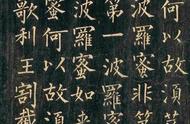 何以故須菩
波羅蜜非第
第一波羅蜜
波羅蜜如來
蜜何以故須
歌利王割截